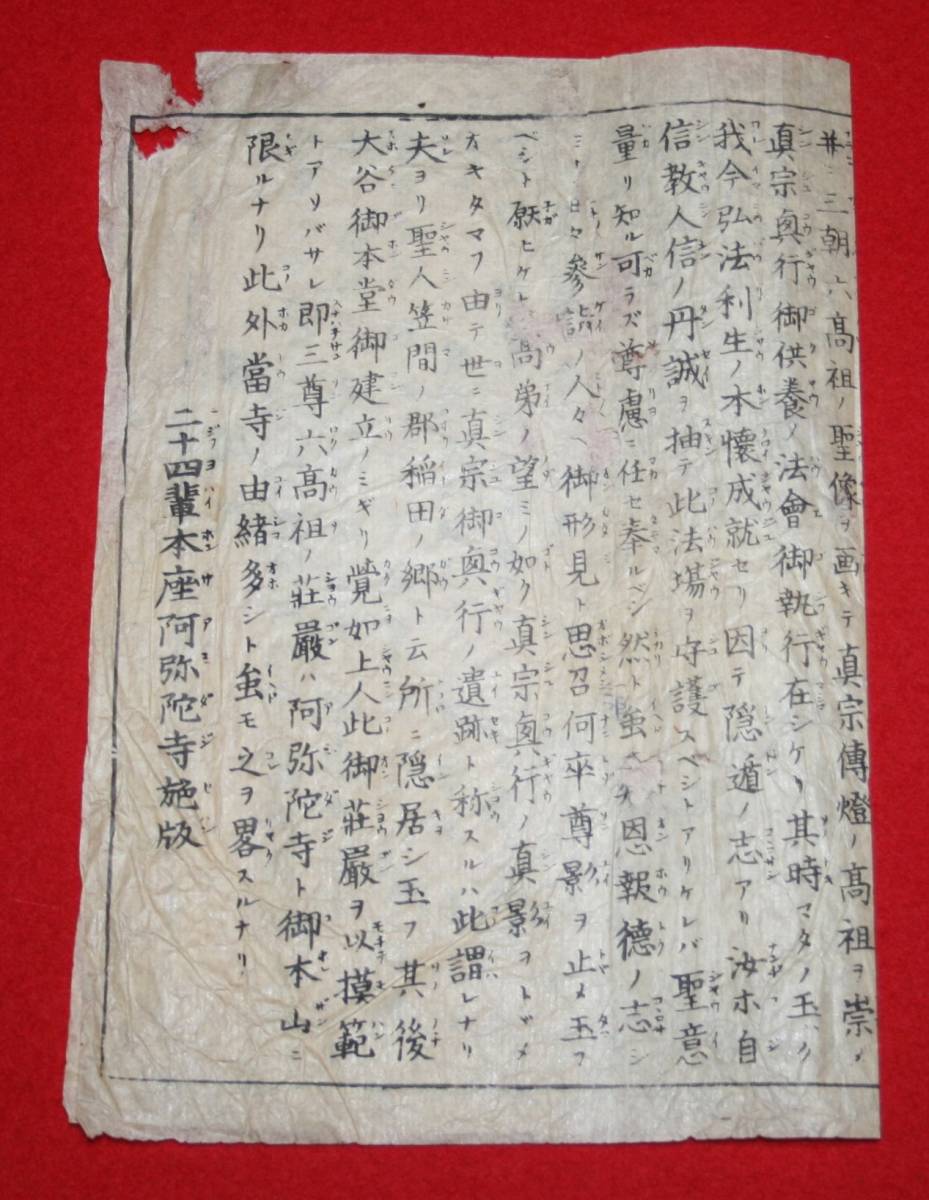 三朝六高祖ノ聖像ヲ画キテ真宗傳燈ノ高祖ヲ崇メ
真宗興行御供養ノ法會御執行在シケリ其時マタノ玉ハク
我今弘法利生ノ本懐成就セリ因テ隠遁ノ志アリ汝ホ自
信教人信ノ丹誠ヲ抽テ此法場ヲ守護スベシトアリケレバ聖意
量リ知ル可ラズ尊慮ニ任セ奉ルベシ然ト虽モ恩報德ノ志シ
日々參詣ノ人々ヘ御形見ト思召何卒尊影ヲ止メ玉フ
ベシト願ヒケレバ高弟ノ望ミノ如ク真宗興行ノ真影ヲトヾメ
オキタマフ由テ世ニ真宗御興行ノ遺跡ト称スルハ此謂レナリ
夫ヨリ聖人笠間ノ郡稲田ノ郷ト云所ニ隠居シ玉フ其後
大谷御本堂御建立ノミギリ覚如上人此御莊嚴ヲ以摸範
トアソバサレ即三尊六高祖ノ莊嚴ハ阿弥陀寺ト御本山ニ
限ルナリ此外當寺ノ由緒多シト虽モ之ヲ畧スルナリ
二十四輩本座阿弥陀寺施版